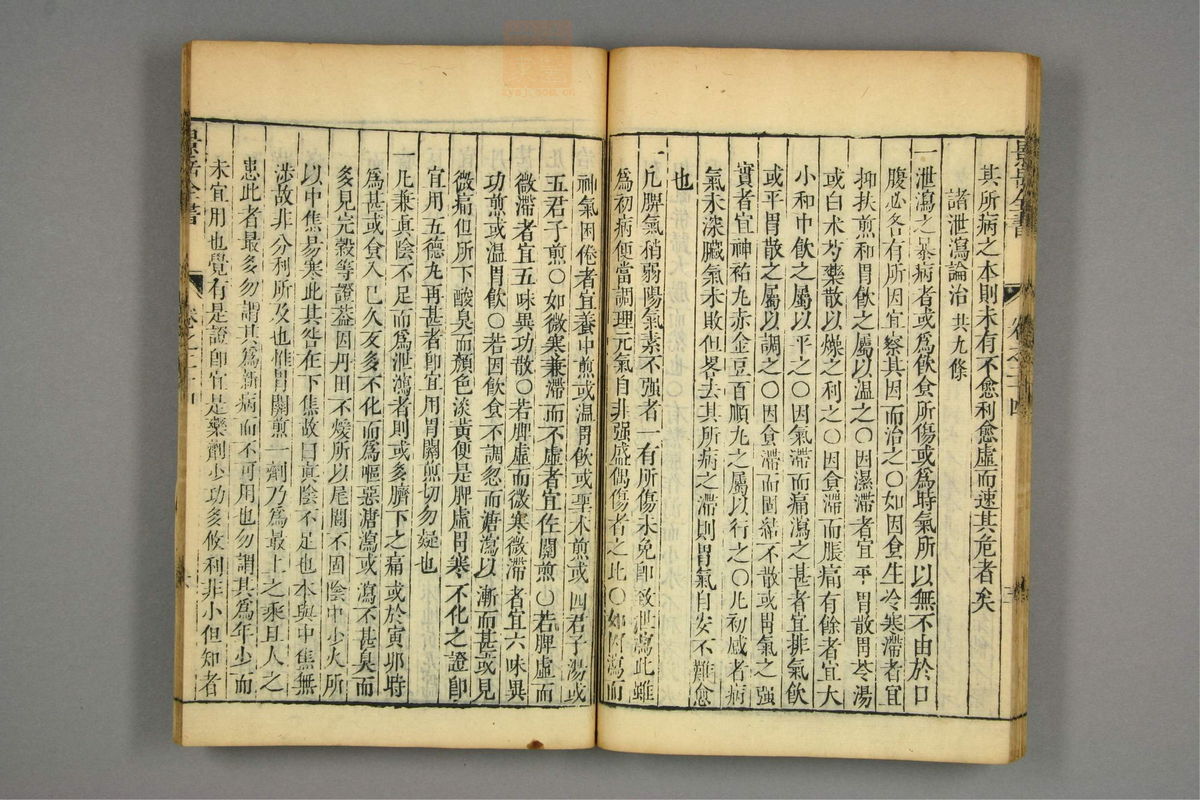 其所病之本則未有不愈利愈虛而速其危者矣
諸泄瀉論治 共九條
一泄瀉之暴病者或爲飲食所傷或爲時氣所以無不由於口
腹必各有所因宜察其因而治之○如因食生冷寒滯者宜
抑扶煎和胃飲之屬以温之○因濕滯者宜平胃散胃苓湯
或白术芍藥散以燥之利之○因食滯而脹痛有餘者宜大
小和中飲之屬以平之○因氣滯而痛瀉之甚者宜排氣飲
或平胃散之屬以調之○因食滯而固結不散或胃氣之强
實者宜神祐丸赤金豆百順丸之屬以行之○凡初感者病
氣未深臟氣未敗但畧去其所病之滯則胃氣自安不難愈
也
一凡脾氣稍弱陽氣素不强者一有所傷未免卽致泄瀉此雖
爲初病便當調理元氣自非强盛偶傷者之比○如因瀉而
神氣困倦者宜養中煎或温胃飲或聖术煎或四君子湯或
五君子煎○如微寒兼滯而不虛者宜佐關煎○若脾虛而
微滯者宜五味異功散○若脾虛而微寒微滯者宜六味異
功煎或温胃飲○若因飲食不調忽而溏瀉以漸而甚或見
微痛但所下酸臭而顏色淡黄便是脾虛胃寒不化之證卽
宜用五德丸再甚者卽宜用胃關煎切勿疑也
凡兼眞陰不足而爲泄瀉者則或多臍下之痛或於寅卯時
爲甚或食入已久反多不化而爲嘔惡溏瀉或瀉不甚臭而
多見完穀等證蓋因丹田不煖所以尾閭不固陰中少火所
以中焦易寒此其咎在下焦故曰眞陰不足也本與中焦無
涉故非分利所及也惟胃關煎一劑乃爲最上之乘且人之
患此者最多勿謂其爲新病而不可用也勿謂其爲年少而
未宜用也覺有是證卽宜是藥劑少功多攸利非小但知者
景岳全書
卷之二十四
景岳全書
卷之二十四